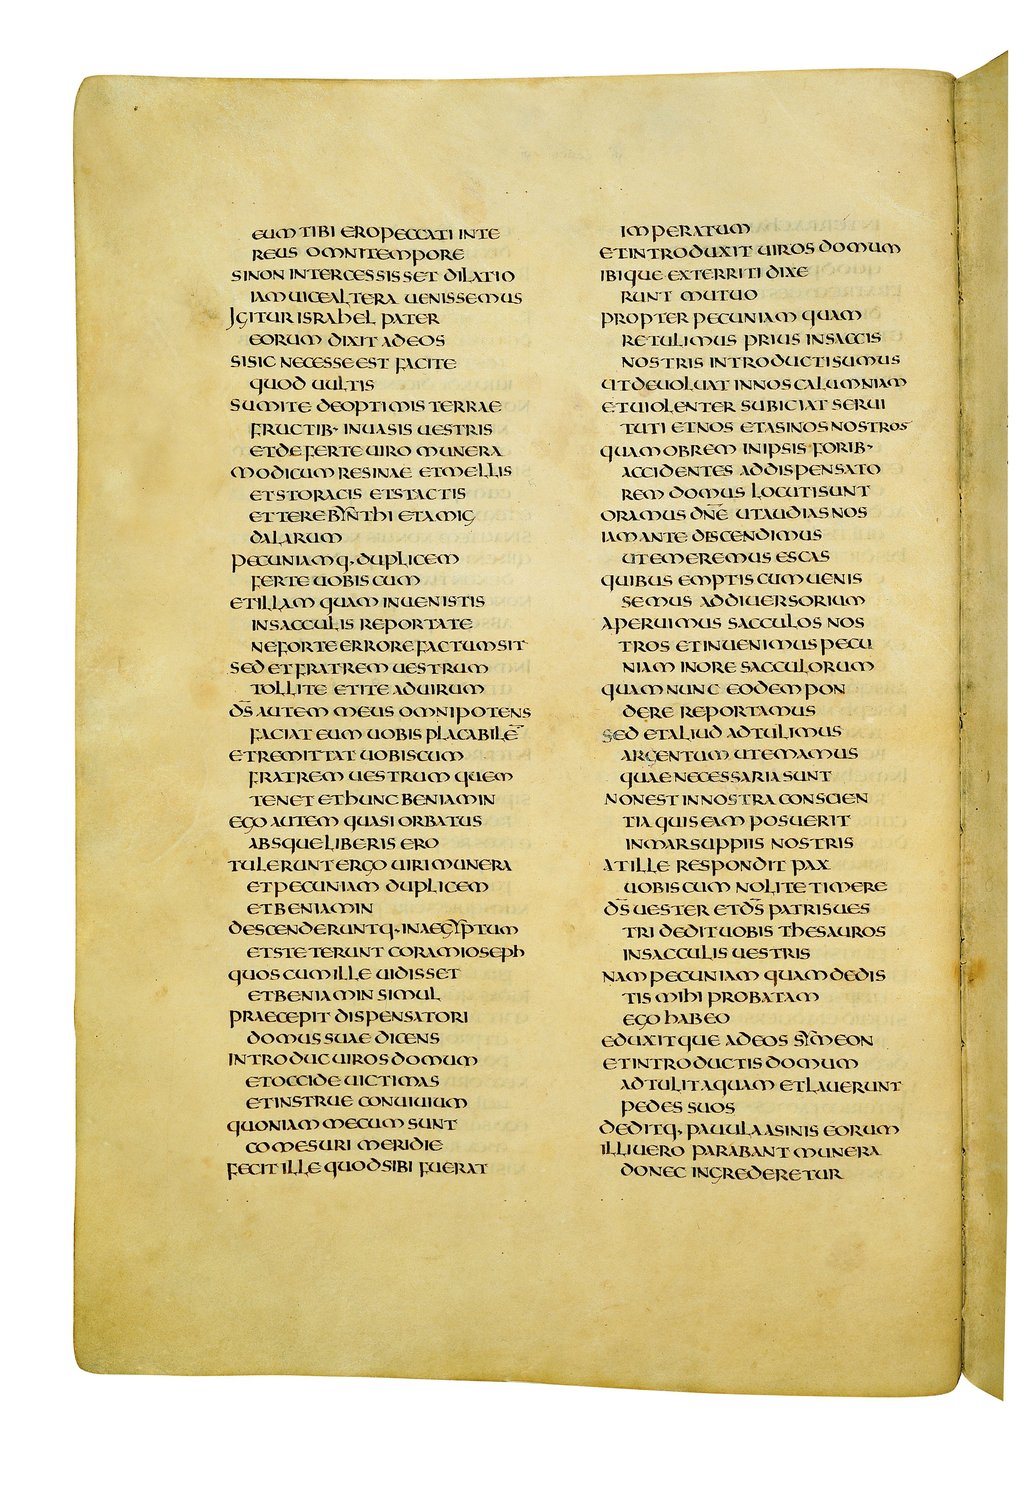 EUM TIBI ERO PECCATI IN TE
REUS OMNI TEMPORE
SI NON INTERCESSISSET DILATIO
IAM VICE ALTERA UENISSEMUS
IGITUR ISRAHEL PATER
EORUM DIXIT AD EOS
SI SIC NECESSE EST FACITE
QUOD UULTIS
SUMITE DE OPTIMIS TERRAE
FRUCTIB· IN UASIS UESTRIS
ET DEFERTE UIRO MUNERA
MODICUM RESINAE ET MELLIS
ET STORACIS ET STACTIS
ET TEREBYNTHI ET AMIG
DALARUM
PECUNIAMQ· DUPLICEM
FERTE UOBISCUM
ET ILLAM QUAM INUENISTIS
IN SACCULIS REPORTATE
NE FORTE ERRORE FACTUM SIT
SED ET FRATREM UESTRUM
TOLLITE ET ITE AD UIRUM
D̅S̅ AUTEM MEUS OMNIPOTENS
FACIAT EUM UOBIS PLACABILE̅
ET REMITTAT UOBISCUM
FRATREM UESTRUM QUEM
TENET ET HUNC BENIAMIN
EGO AUTEM QUASI ORBATUS
ABSQUE LIBERIS ERO
TULERUNT ERGO UIRI MUNERA
ET PECUNIAM DUPLICEM
ET BENIAMIN
DESCENDERUNTQ· IN AEGYPTUM
ET STETERUNT CORAM IOSEPH
QUOS CUM ILLE UIDISSET
ET BENIAMIN SIMUL
PRAECEPIT DISPENSATORI
DOMUS SUAE DICENS
INTRODUC UIROS DOMUM
ET OCCIDE UICTIMAS
ET INSTRUE CONUIUIUM
QUONIAM MECUM SUNT
COMESURI MERIDIE
FECIT ILLE QUOD SIBI FUERAT
IMPERATUM
ET INTRODUXIT UIROS DOMUM
IBIQUE EXTERRITI DIXE
RUNT MUTUO
PROPTER PECUNIAM QUAM
RETULIMUS PRIUS IN SACCIS
NOSTRIS INTRODUCTI SUMUS
UT DEUOLUAT IN NOS CALUMNIAM
ET UIOLENTER SUBICIAT SERUI
TUTI ET NOS ET ASINOS NOSTROS
QUAMOBREM IN IPSIS FORIB·
ACCIDENTES AD DISPENSATO
REM DOMUS LOCUTI SUNT
ORAMUS DN̅E UT AUDIAS NOS
IAM ANTE DISCENDIMUS
UT EMEREMUS ESCAS
QUIBUS EMPTIS CUM UENIS
SEMUS AD DIUERSORIUM
APERUIMUS SACCULOS NOS
TROS ET INUENIMUS PECU
NIAM IN ORE SACCULORUM
QUAM NUNC EODEM PON
DERE REPORTAMUS
SED ET ALIUD ADTULIMUS
ARGENTUM UT EMAMUS
QUAE NECESSARIA SUNT
NON EST IN NOSTRA CONSCIEN
TIA QUIS EAM POSUERIT
IN MARSUPPIIS NOSTRIS
AT ILLE RESPONDIT PAX
UOBISCUM NOLITE TIMERE
D̅S̅ UESTER ET D̅S̅ PATRIS UES
TRI DEDIT UOBIS THESAUROS
IN SACCULIS UESTRIS
NAM PECUNIAM QUAM DEDIS
TIS MIHI PROBATAM
EGO HABEO
EDUXITQUE AD EOS SYMEON
ET INTRODUCTIS DOMUM
ADTULIT AQUAM ET LAUERUNT
PEDES SUOS
DEDITQ· PAUULA ASINIS EORUM
ILLI UERO PARABANT MUNERA
DONEC INGREDERETUR